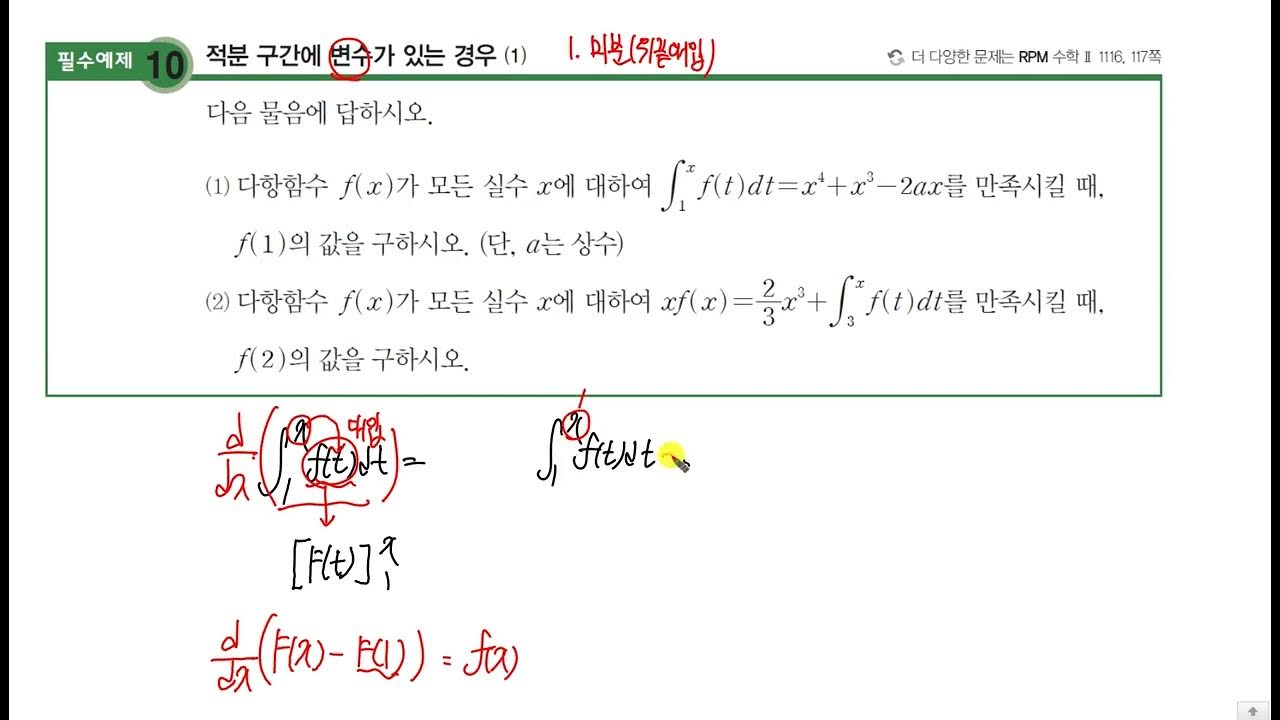 필수예제 10 적분 구간에 변수가 있는 경우 (1) 1. 미분(위끝대입) 더 다양한 문제는 RPM 수학 Ⅱ 1116, 117쪽
다음 물음에 답하시오.
(1) 다항함수 f(x)가 모든 실수 x에 대하여 ∫₁ˣ f(t)dt=x⁴+x³−2ax를 만족시킬 때,
f(1)의 값을 구하시오. (단, a는 상수)
(2) 다항함수 f(x)가 모든 실수 x에 대하여 xf(x)=2/3x³+∫₃ˣ f(t)dt를 만족시킬 때,
f(2)의 값을 구하시오.
d/dx(∫₁ˣ f(t)dt)= 대입
∫₁ˣ f(t)dt 1
[F(t)]₁ˣ
d/dx(F(x)−F(1))=f(x)